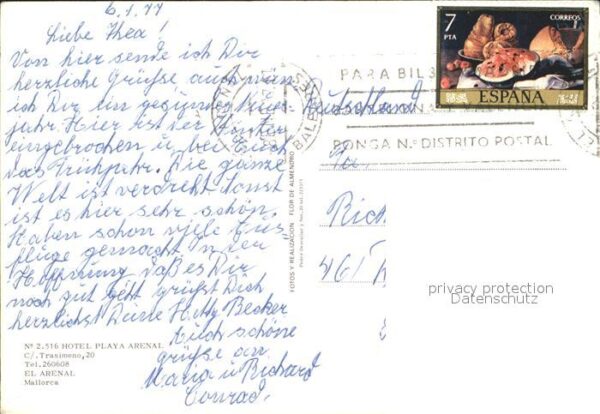 6.1.77
Liebe Thea!
Von hier sende ich Dir
herzliche Grüße auch wün
ich Dir ein gesundes neues
jahr. Hier ist der
eingebrochen u bei Euch
das Frühjahr. Die ganze
Welt ist verdreht sonst
ist es hier sehr schön.
Haben schon viele Aus
flüge gemacht in der
Hoffnung daß es Dir
noch gut geht grüßt Dich
herzlichst Deine Hetty Becker
Auch schöne
grüße an
Maria u Richard
Conrad.
Nº 2.516 HOTEL PLAYA ARENAL
C/. Trasimeno, 20
Tel. 260608
EL ARENAL
Mallorca
FOTOS Y REALIZACION FLOR DE ALMENDRO
7
PTA
CORREOS
ESPAÑA
PARA
PONGA N.º DISTRITO POSTAL
Deutschland
Fa.
Rich
461
privacy protection
Datenschutz